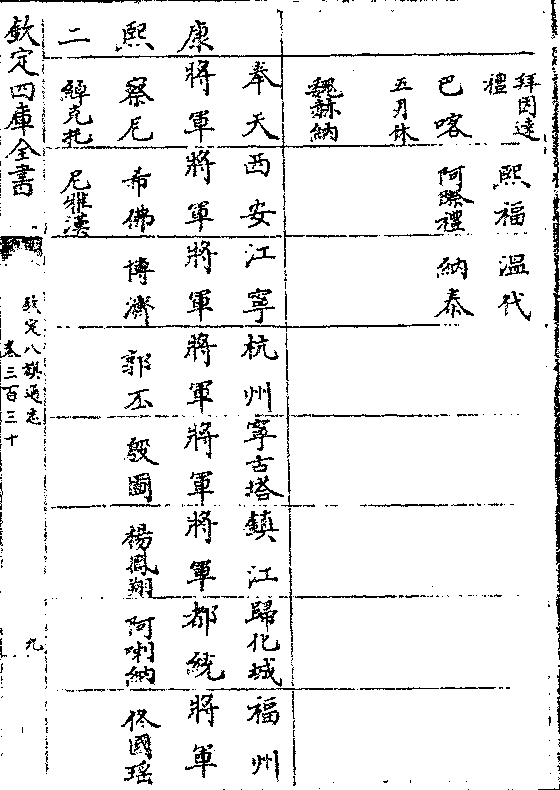 拜因達禮 熙福 溫代
巴喀 納泰
五月休
魏赫納
奉天 西安 江寧 杭州 寧古塔 鎮江 歸化城 福州
康熙二
將軍 將軍 將軍 將軍 將軍 將軍 都統 將軍
察尼 希佛 博濟 郭丕 殷圖 楊鳳翔 阿喇納 佟國瑤
綽克托 尼雅漢
欽定四庫全書
欽定八旗通志
卷三百三十
九